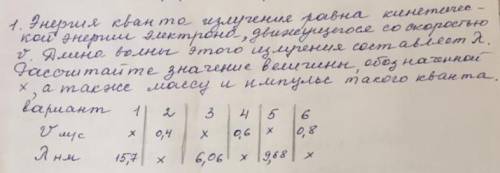 1. Энергия кванта излучения равна кинетичес-
кой энергии электрона, движущегося со скоростью
v. Длина волны этого излучения составляет λ.
Рассчитайте значение величины, обозначенной
х, а также массу и импульс такого кванта.
Вариант 1 | 2 | 3 | 4 | 5 | 6
V м/с х | 0,4 | х | 0,6 | х | 0,8
λ нм 15,7 | х | 6,06 | х | 9,68 | х